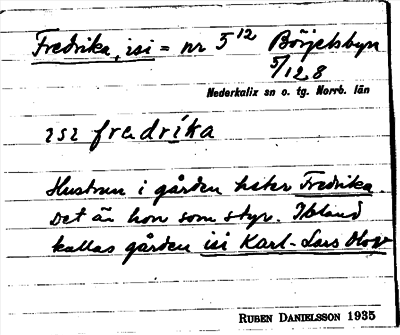 Fredrika, isi = nr 5¹² Börjelsbyn
5/12 8
Nederkalix sn o. tg. Norrb. län
ısı fredríka
Hustrun i gården heter Fredrika.
Det är hon som styr. Ibland
kallas gården isi Karl-Lars Olov
RUBEN DANIELSSON 1935